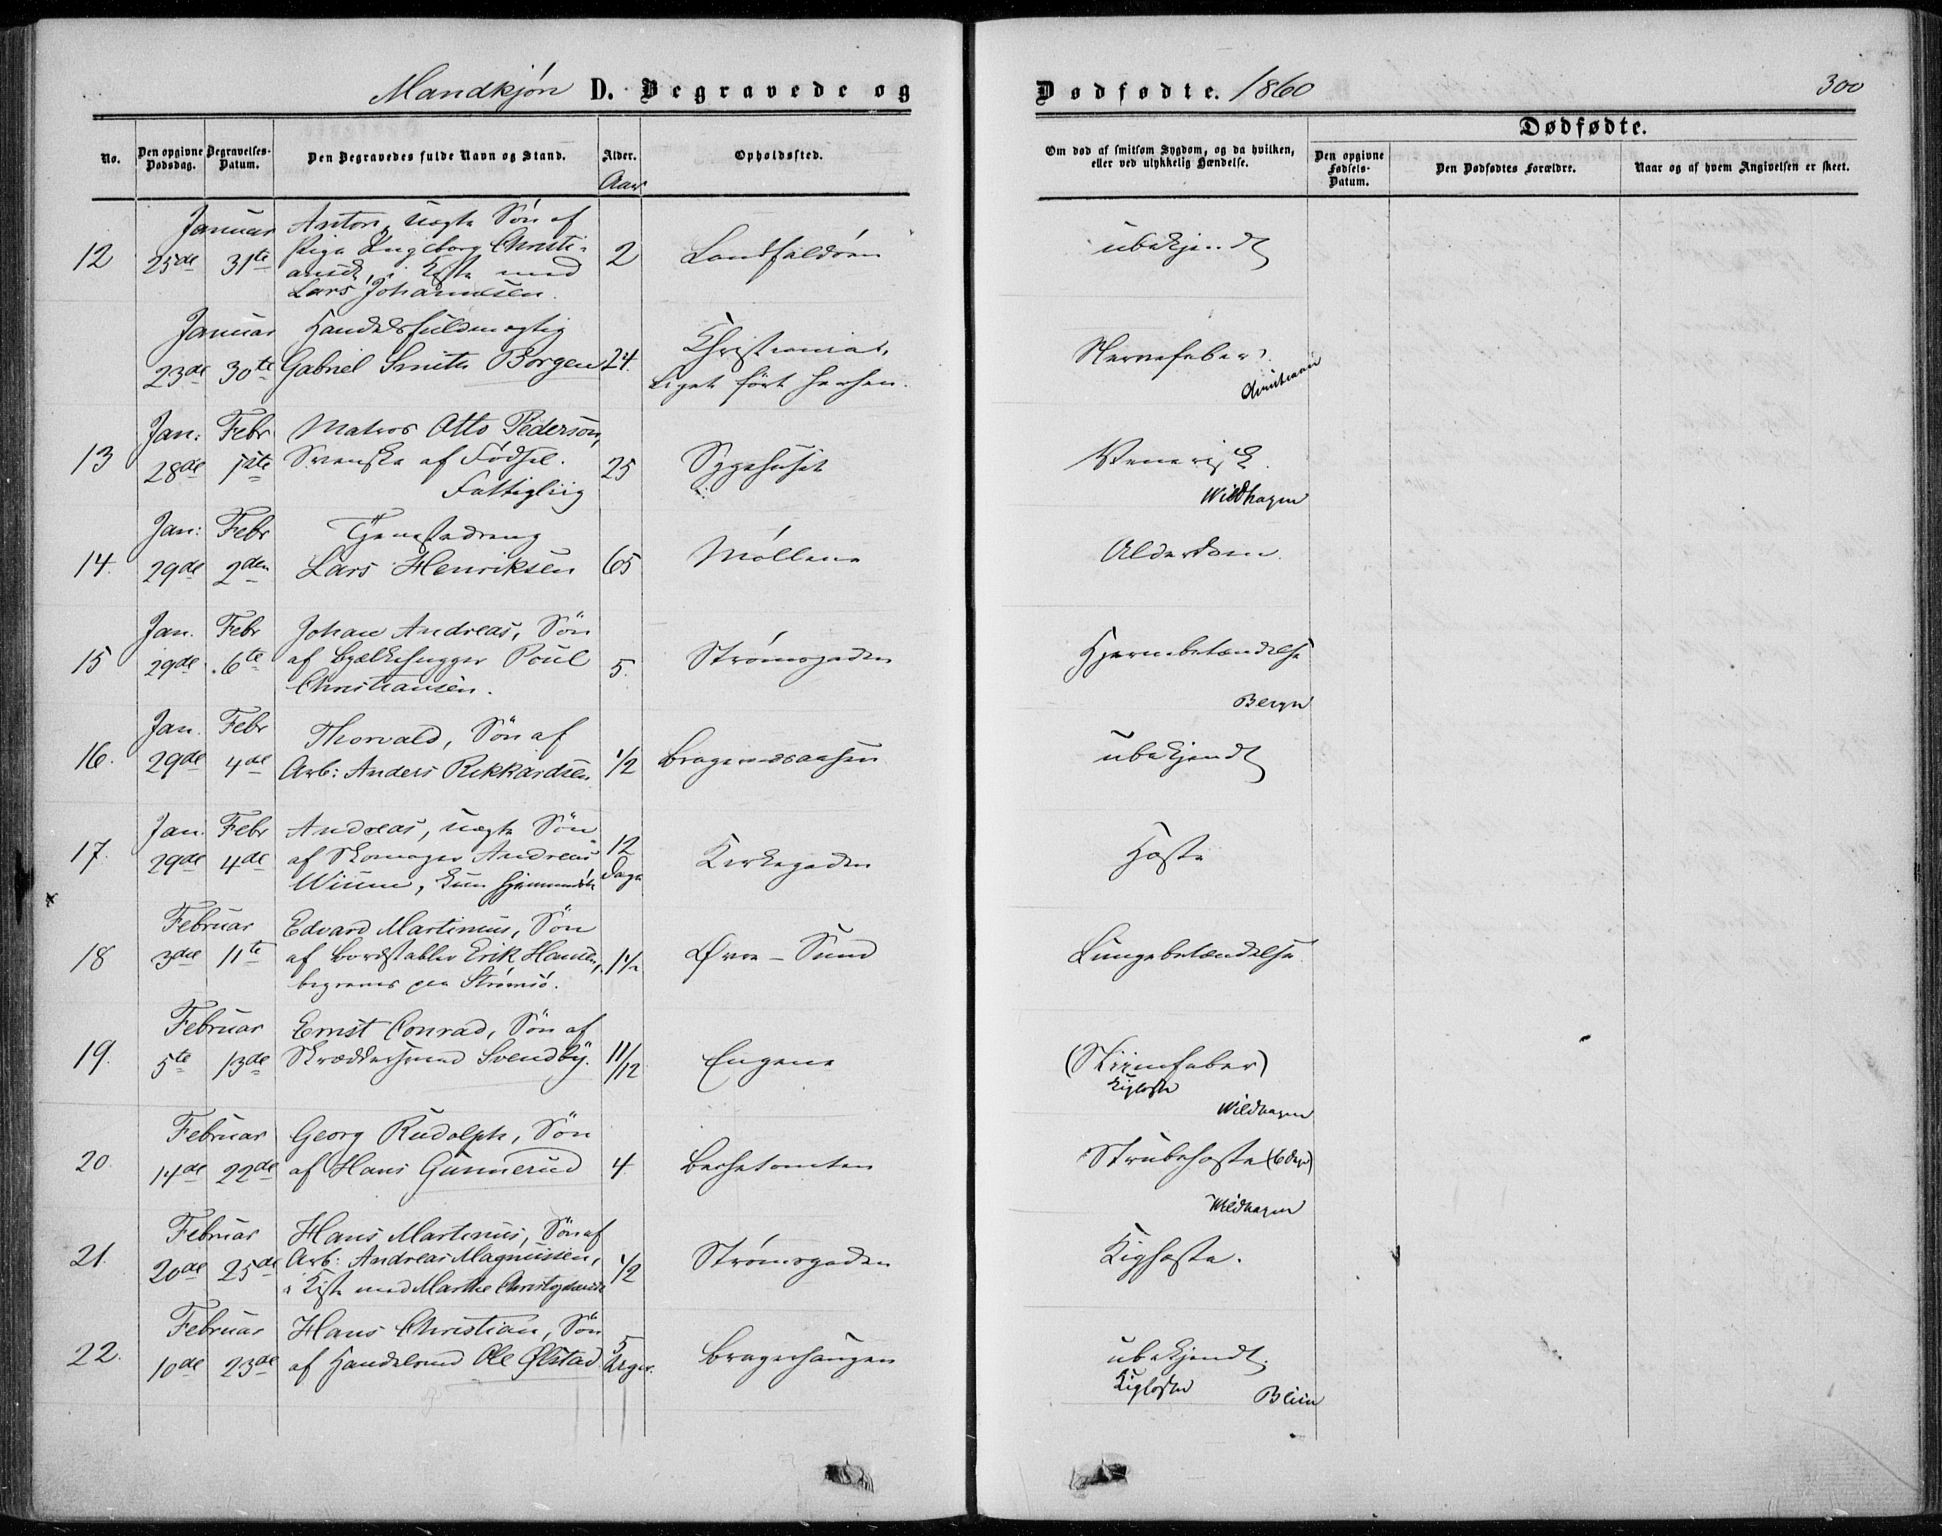 Mandkjøn D. Begravede og
Dødfødte. 1860
300
No.
Den opgivne Dødsdag.
Begravelses-Datum.
Den Begravedes fulde Navn og Stand.
Alder.
Aar
Opholdssted.
Om død af smitsom Sygdom, og da hvilken, eller ved ulykkelig Hændelse.
Dødfødte.
Den opgivne Fødsels-Datum.
Den Dødfødtes Forældre.
Naar og af hvem Angivelsen er skeet.
Januar Anton, uægte Søn af
12 25de 31te Pige Ingeborg Christi- 2 Landfaldøen ubekjendt
ansd, i Kiste med
Lars Johannesen.
Januar Handelsfuldmægtig
23de 30te Gabriel Smith Borgen 24 Christiania, Nervefeber.
Liget ført hertil.
Jan: Febr Matros Otto Pederson,
13 28de 1ste Svenske af Fødsel. 25 Sygehuset Venerisk
Fattigliig Wildhagen
Jan: Febr Tjenestedreng
14. 29de 2den Lars Henriksen 65 Møllene Alderdom.
Jan. Febr Johan Andreas, Søn
15 29de 6te af Bjælkehugger Poul 5. Strømsgaden Hjernebetændelse
Christiansen.
Jan. Febr Thorvald, Søn af
16. 29de 4de Arb: Anders Rikkardsen 1/2 Bragernesaasen ubekjendt
Jan. Febr Andreas, uægte Søn
17. 29de 4de af Skomager Andreas 12 Dage Kirkegaden Hoste
Wiium, kun hjemmedøbt
Februar Edvard Martinius, Søn
18 3die 11te af Bordstabler Erik Hansen, 1 1/2 Øvre-Sund Lungebetændelse
begraves paa Strømsø.
Februar Ernst Conrad, Søn af
19. 5te 13de Skræddersvend Svendby. 11/12 Engene (Nervefeber)
Kighoste
Wildhagen
Februar Georg Rudolph, Søn
20. 14de 22de af Hans Gunnerud 4. Strubehoste
Wildhagen
Februar Hans Martinius, Søn af
21. 20de 25de Arb: Andreas Magnussen, 1/2 Strømsgaden Kighoste.
i Kiste med Marthe
Februar Hans Christian, Søn
22. 10de 23de af Handelsmd Ole Ølstad 5 Uger. Bragerhaugen ubekjendt.
Kighoste